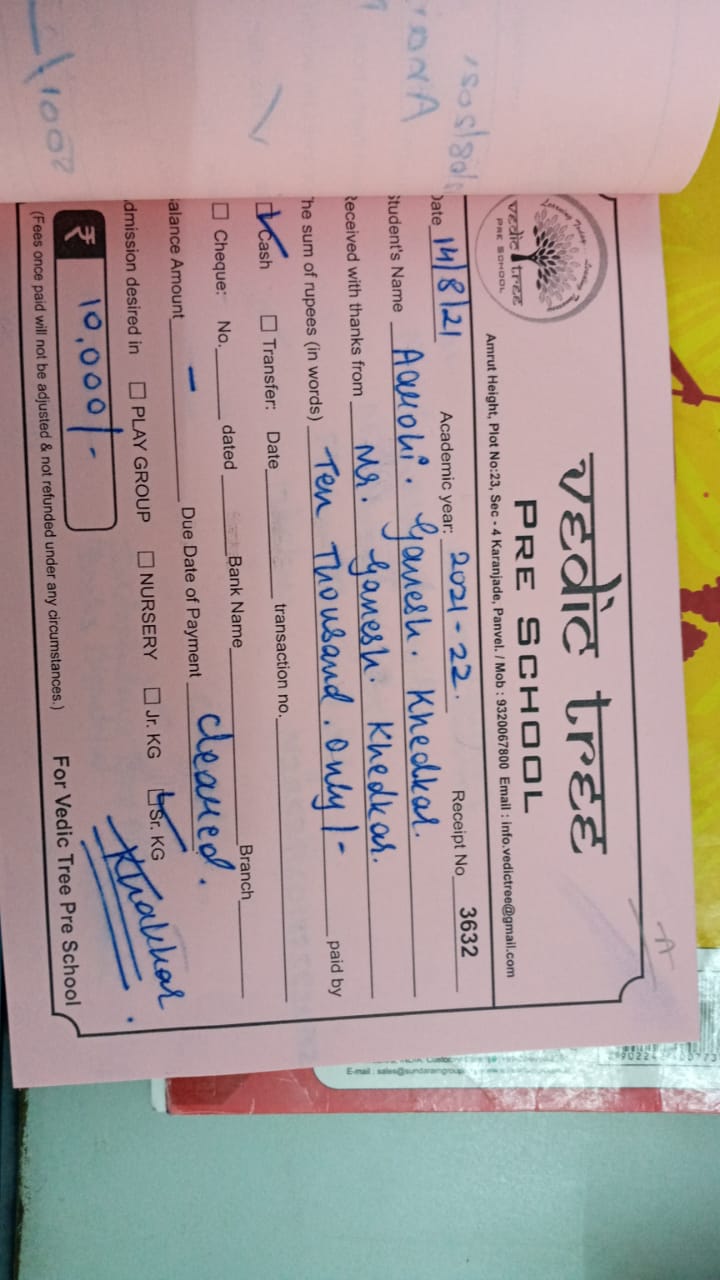 vedic tree
PRE SCHOOL
vedic tree
PRE SCHOOL
Amrut Height, Plot No:23, Sec - 4 Karanjade, Panvel. / Mob : 9320067800 Email : info.vedictree@gmail.com
Date 14/8/21 Academic year: 2021-22. Receipt No 3632
Student's Name Aarohi. Ganesh. Khedkar.
Received with thanks from Mr. Ganesh. Khedkar.
The sum of rupees (in words) Ten Thousand. only/- paid by
Cash Transfer: Date transaction no.
Cheque: No. dated Bank Name Branch
alance Amount - Due Date of Payment cleared.
dmission desired in PLAY GROUP NURSERY Jr. KG Sr. KG
₹ 10,000/-
Khakhar
(Fees once paid will not be adjusted & not refunded under any circumstances.) For Vedic Tree Pre School